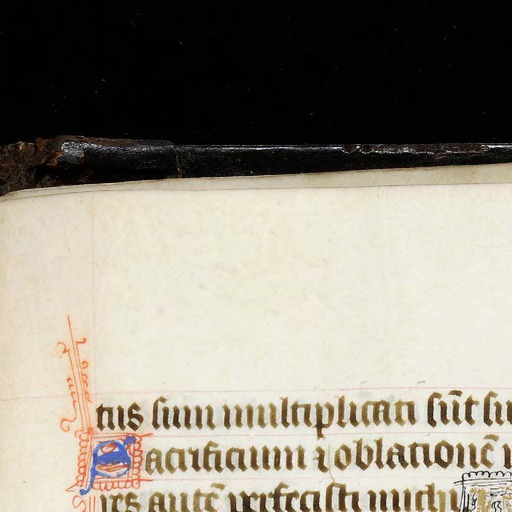 tus sum multiplicati sūt su
Sacrificium ⁊ oblationē
res autē perfecisti michi